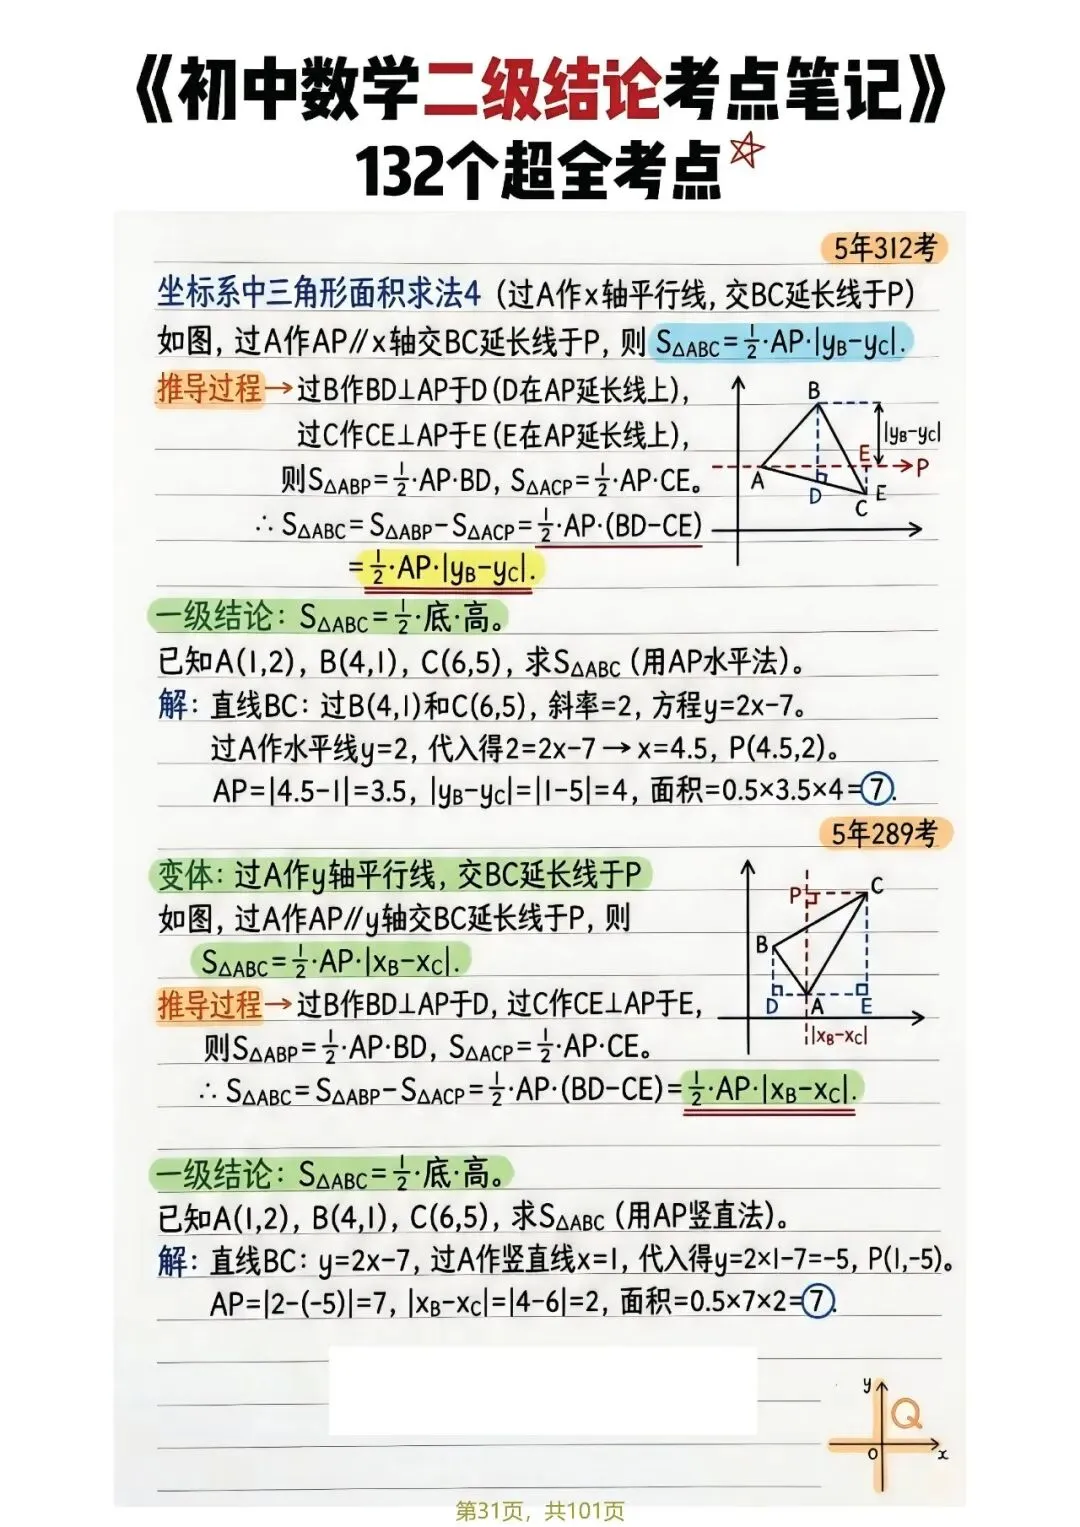 《初中数学二级结论考点笔记》
132个超全考点
5年312考
坐标系中三角形面积求法4（过A作x轴平行线，交BC延长线于P）
如图，过A作AP∥x轴交BC延长线于P，则 S△ABC=1/2·AP·|yB-yC|.
推导过程→过B作BD⊥AP于D（D在AP延长线上），
过C作CE⊥AP于E（E在AP延长线上），
则S△ABP=1/2·AP·BD，S△ACP=1/2·AP·CE。
∴ S△ABC=S△ABP-S△ACP=1/2·AP·(BD-CE)
=1/2·AP·|yB-yC|.
B
|yB-yC|
E
P
A
D
C
E
一级结论：S△ABC=1/2·底·高。
已知A(1,2)，B(4,1)，C(6,5)，求S△ABC（用AP水平法）。
解：直线BC：过B(4,1)和C(6,5)，斜率=2，方程y=2x-7。
过A作水平线y=2，代入得2=2x-7→x=4.5，P(4.5,2)。
AP=|4.5-1|=3.5，|yB-yC|=|1-5|=4，面积=0.5×3.5×4=⑦.
5年289考
变体：过A作y轴平行线，交BC延长线于P
如图，过A作AP∥y轴交BC延长线于P，则
S△ABC=1/2·AP·|xB-xC|.
推导过程→过B作BD⊥AP于D，过C作CE⊥AP于E，
则S△ABP=1/2·AP·BD，S△ACP=1/2·AP·CE。
∴ S△ABC=S△ABP-S△ACP=1/2·AP·(BD-CE)=1/2·AP·|xB-xC|.
P
C
B
D
A
E
|xB-xC|
一级结论：S△ABC=1/2·底·高。
已知A(1,2)，B(4,1)，C(6,5)，求S△ABC（用AP竖直法）。
解：直线BC：y=2x-7，过A作竖直线x=1，代入得y=2×1-7=-5，P(1,-5)。
AP=|2-(-5)|=7，|xB-xC|=|4-6|=2，面积=0.5×7×2=⑦.
y
Q
O
x
第31页，共101页